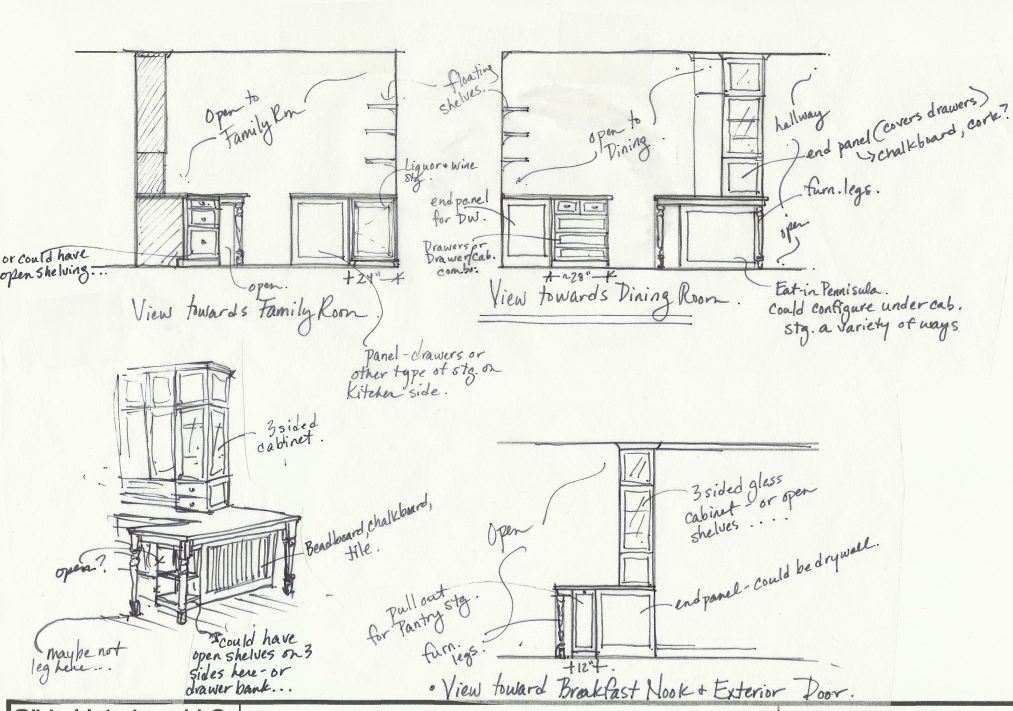 Open to
Family Rm
floating
shelves.
Liquor + wine
stg.
or could have
open shelving...
open.
24"
View towards Family Room
Panel - drawers or
other type of stg. on
Kitchen side.
end panel
for DW.
Drawers or
Drawer/cab.
combo.
open to
Dining
~28"
View towards Dining Room.
hallway
end panel (covers drawers)
chalkboard, cork?
furn. legs.
open
Eat-in Pennisula.
could configure under cab.
stg. a variety of ways
3 sided
cabinet.
Beadboard, chalkboard,
tile.
open?
maybe not
leg here...
could have
open shelves on 3
sides here - or
drawer bank...
Open
3 sided glass
cabinet - or open
shelves .....
pull out
for Pantry stg.
furn.
legs.
end panel - could be drywall.
12"
• View toward Breakfast Nook + Exterior Door.